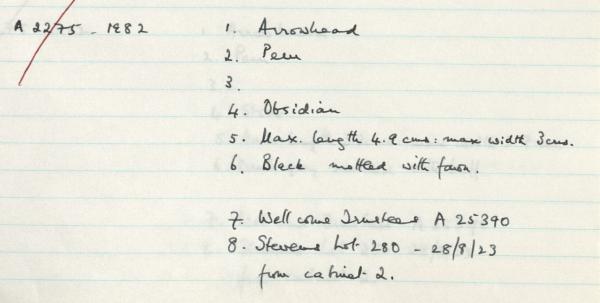 A 2275 - 1982 1. Arrowhead
2. Peru
3.
4. Obsidian
5. Max. length 4.9 cms: max width 3cms.
6. Black mottled with fawn.
7. Wellcome Trustees A 25390
8. Stevens Lot 280 - 28/8/23
from cabinet 2.